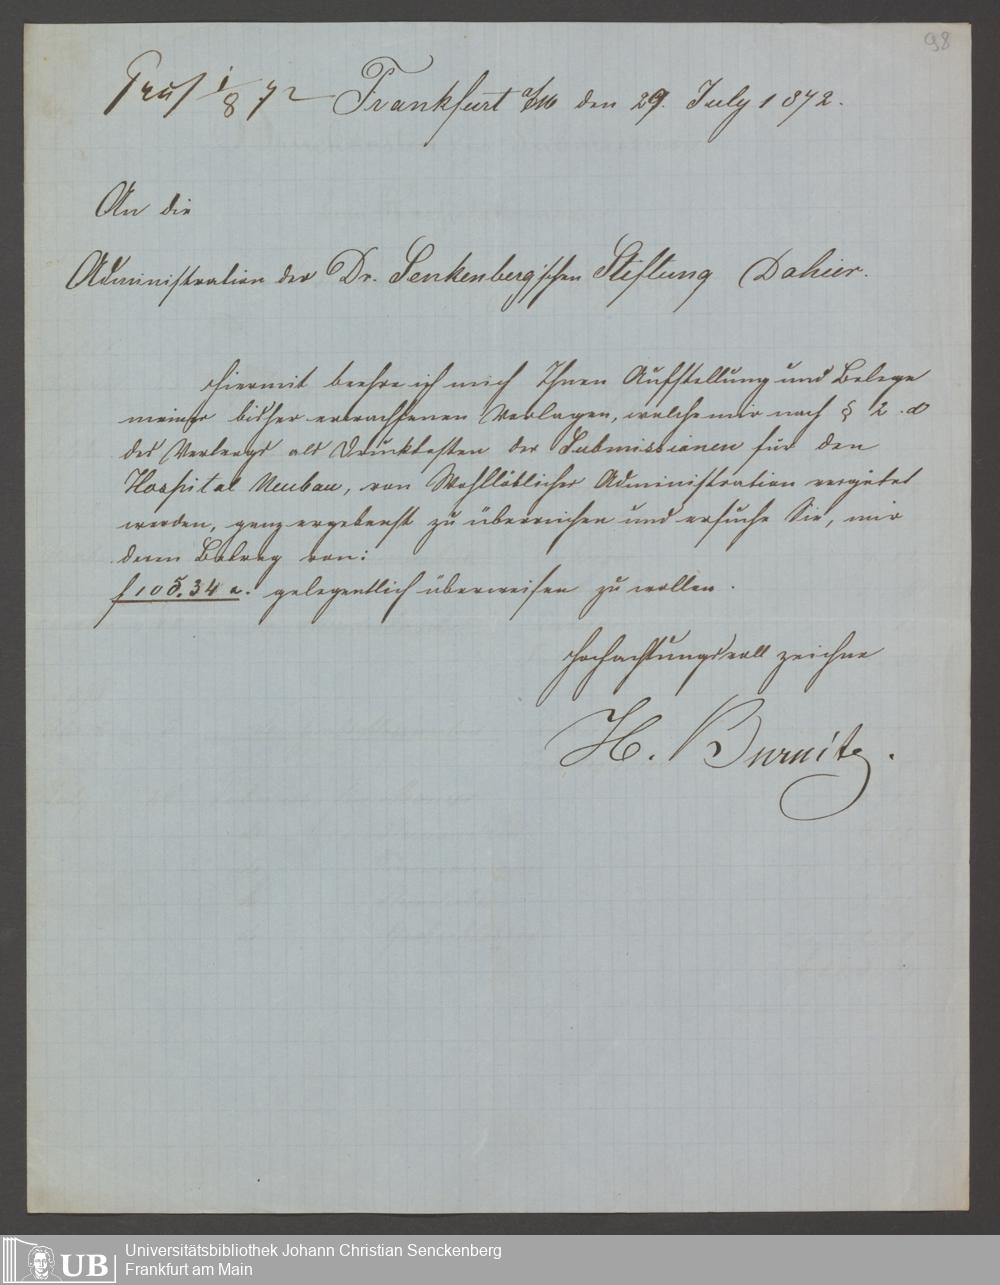 98
Präs 1/8 72 Frankfurt a/M den 29. July 1872.
An die
Administration der Dr. Senkenberg'schen Stiftung Dahier.
Hiermit beehre ich mich Ihnen Aufstellung und Belege
meiner bisher erwachsenen Vorlagen, welche mir nach § 2. d
des Vertrags als Druckkosten der Submissionen für den
Hospital Neubau, von Wohllöblicher Administration vergütet
werden, ganz ergebenst zu überreichen und ersuche Sie, mir
deren Betrag von:
f 105. 34 x. gelegentlich überweisen zu wollen.
Hochachtungsvoll zeichne
H. Burnitz.
UB
Universitätsbibliothek Johann Christian Senckenberg
Frankfurt am Main